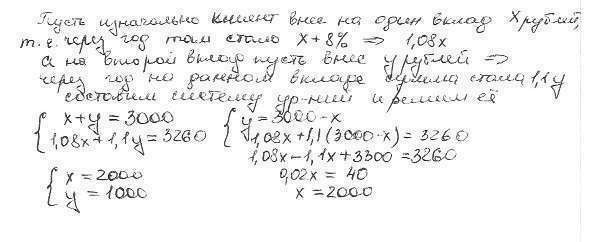 Пусть изначально клиент внес на один вклад x рублей,
т.е. через год там стало x+8% => 1,08x
а на второй вклад пусть внес y рублей =>
через год на данном вкладе сумма стала 1,1y
составим систему ур-ний и решим её
{ x+y = 3000 { y = 3000-x
1,08x+1,1y = 3260 1,08x+1,1(3000-x) = 3260
1,08x-1,1x+3300 = 3260
{ x = 2000 0,02x = 40
y = 1000 x = 2000